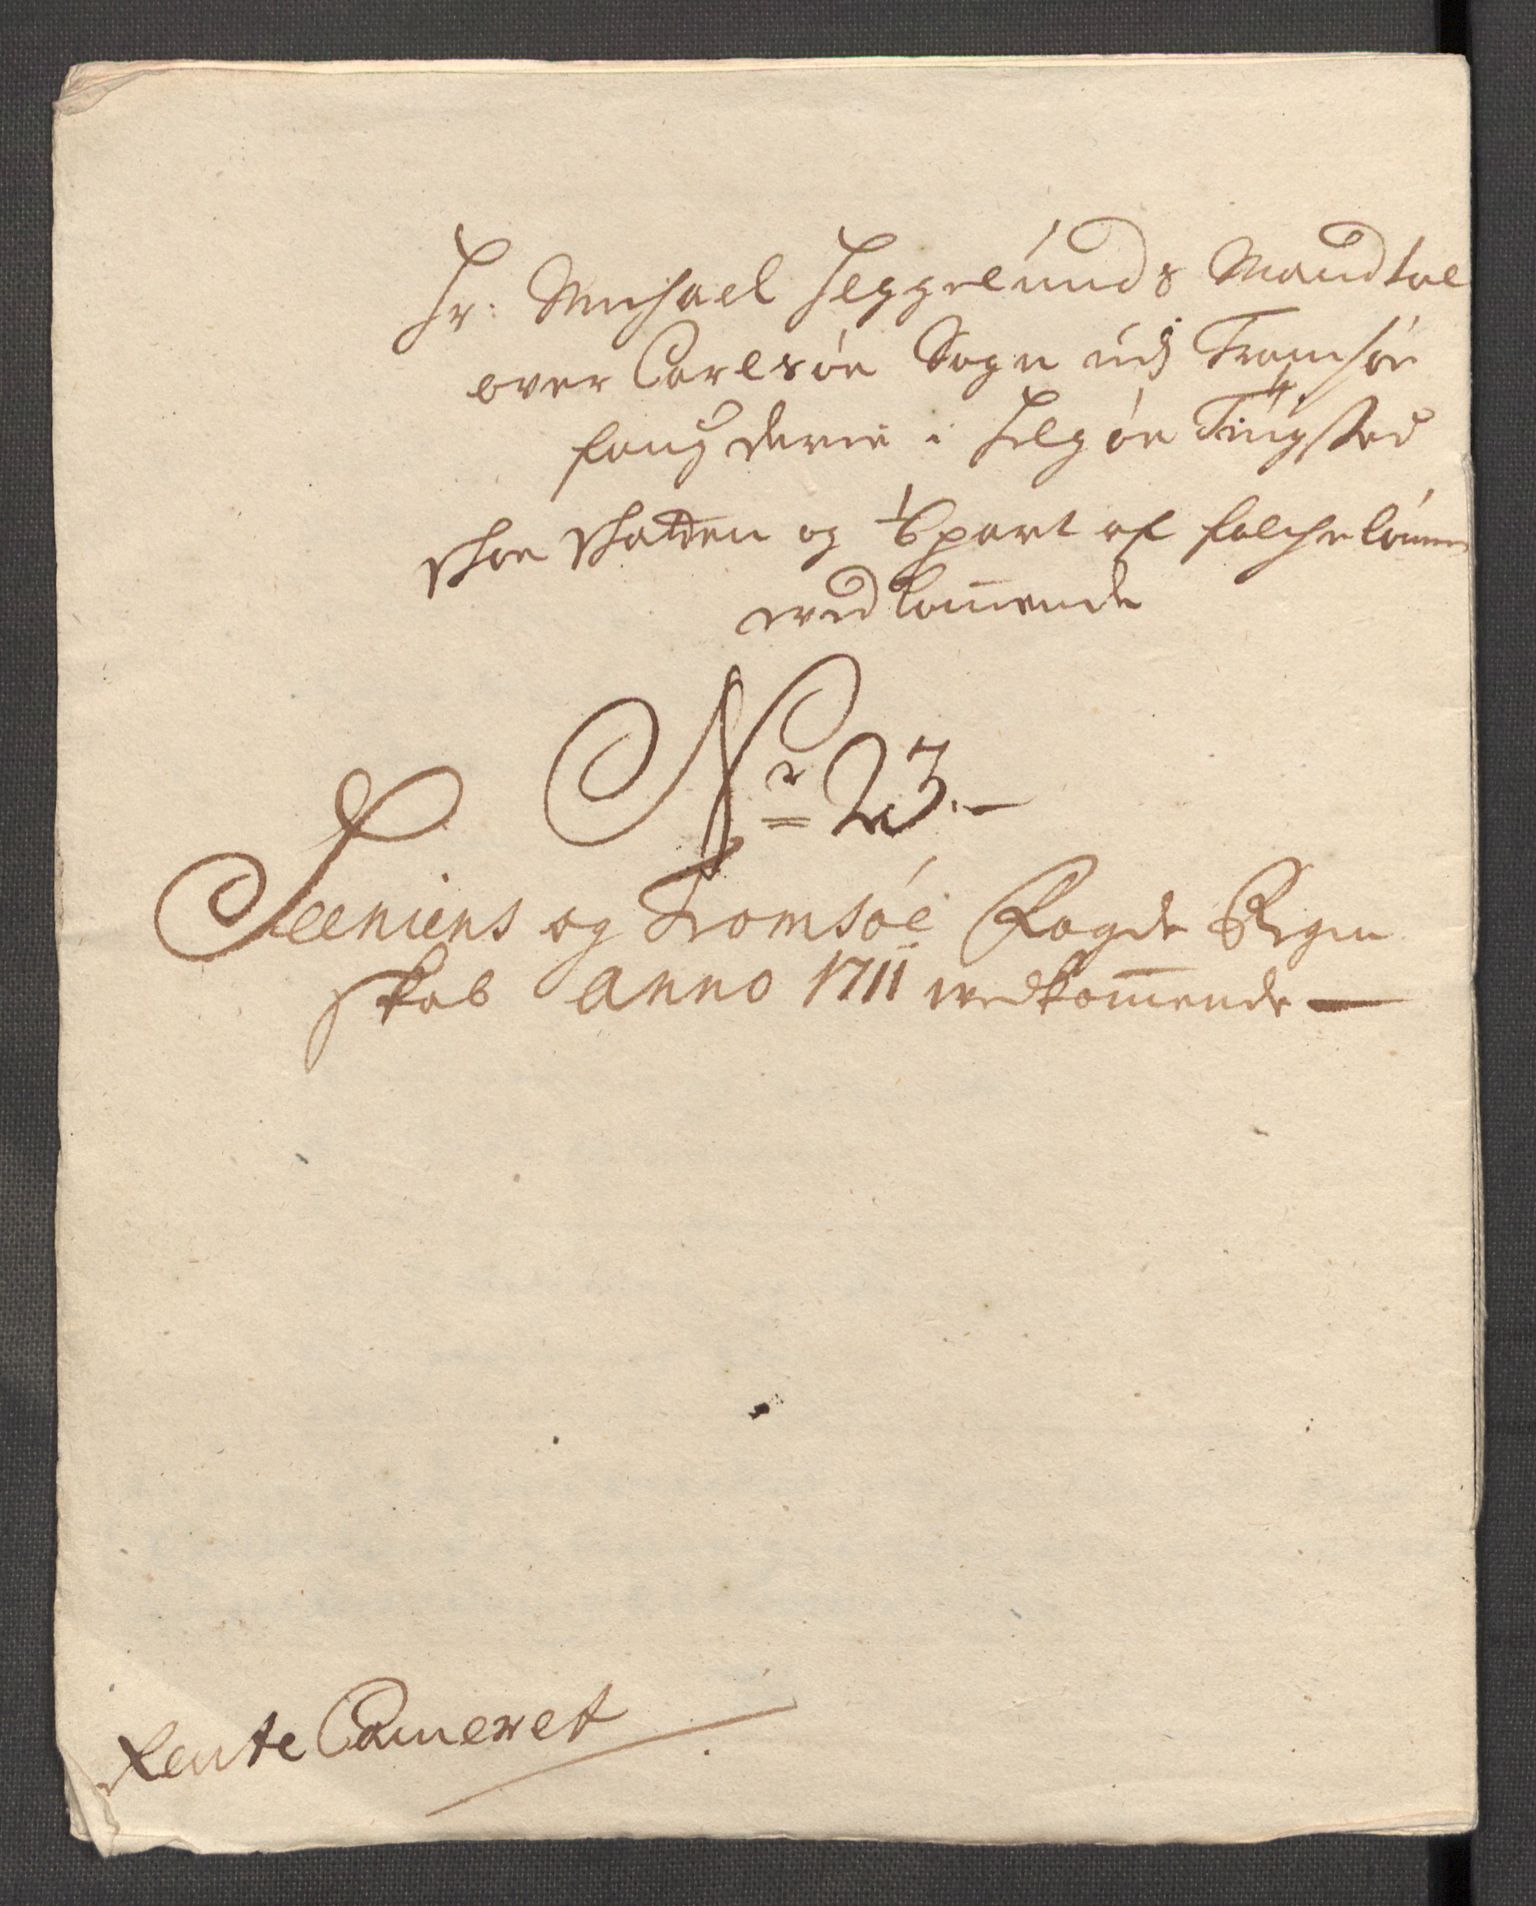 Hr: Michael Heggelunds Mandtal
over Carlsøe Sogn udj Tromsøe
fougderie i Helgøe Tingsted
Skoe Skatten og 1/6 part af folche lønnen
vedkom̅ende
Nr 23.-
Seeniens og Tromsøe Fogde Regen
skab Anno 1711 vedkom̅ende —
Rente Cameret